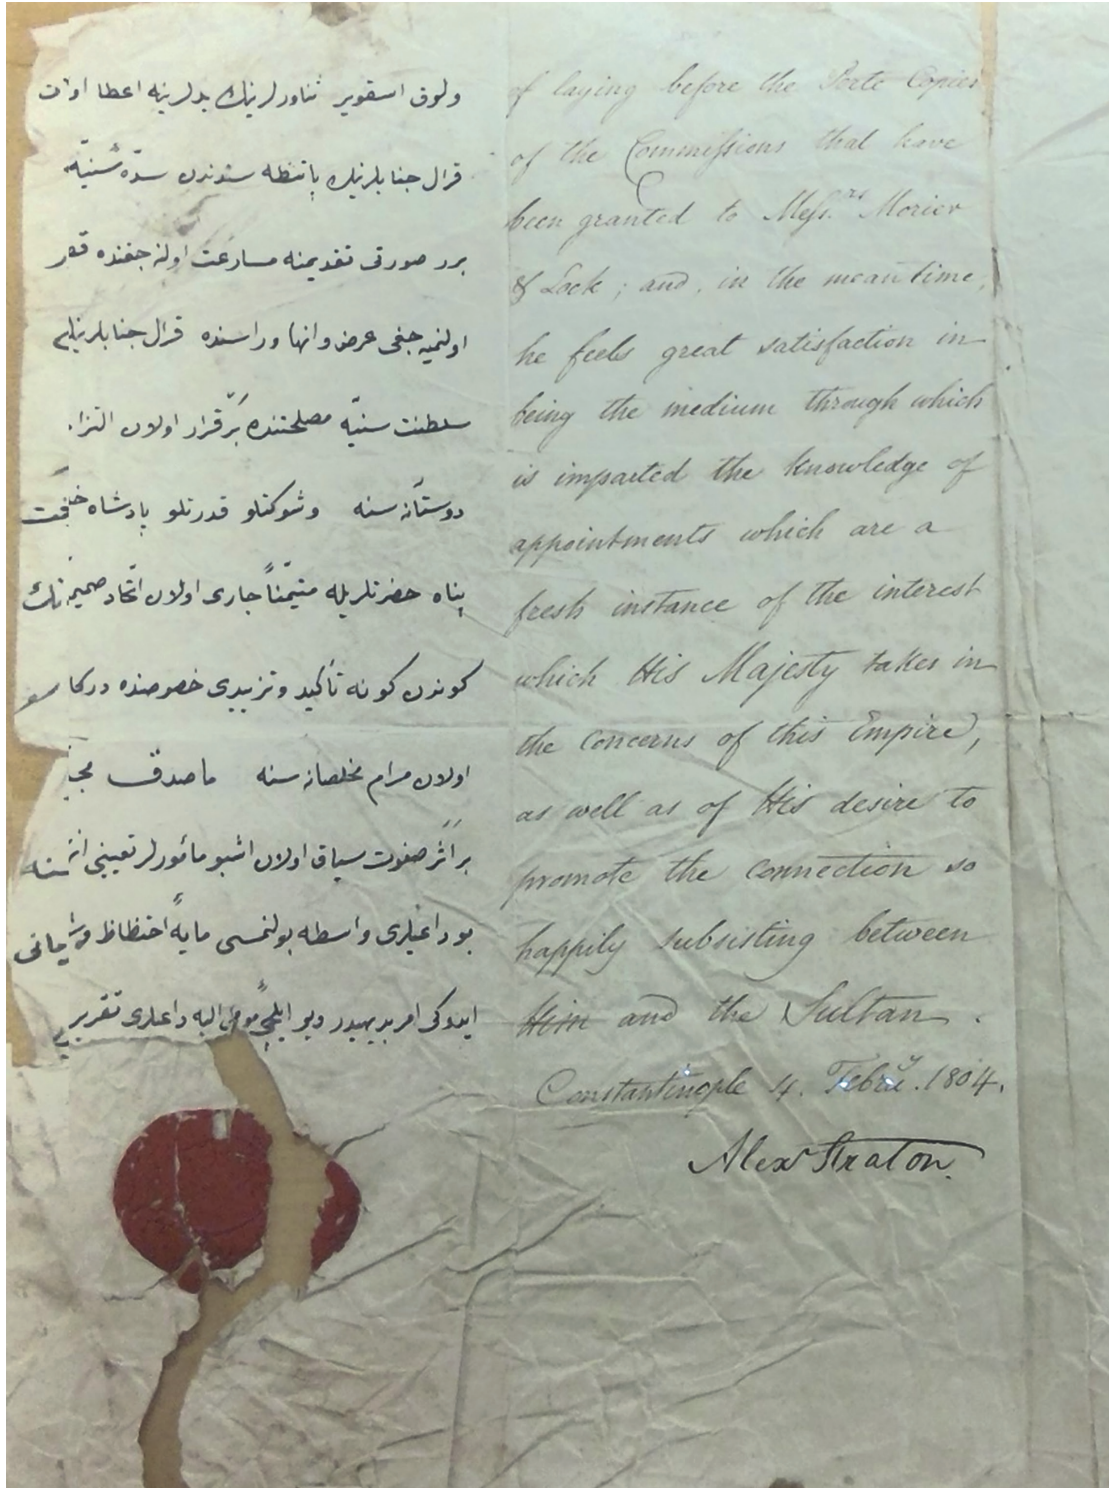 ولوق اسقویر ثناورلرینك یدلرینه اعطا اولنان
قرال جنابلرینك پاتنطه سندندن سدّهٔ سنیّه
برر صورتی تقدیمنه مسارعت اولنه جغنده قصور
اولنمیه جغی عرض و انها وراسنده قرال جنابلرینك
سلطنت سنیّه مصلحتنده برقرار اولان التزام
دوستانه سنه وشوکتلو قدرتلو پادشاه خلافت
پناه حضرتلریله متیمّناً جاری اولان اتّحاد صمیمه نك
کوندن کونه تأکید وتزییدی خصوصنده درکار
اولان مرام مخلصانه سنه ماصدق
بر اثر صفوت سیاق اولان اشبو مأمورلر تعیینی
بو داعیلری واسطه بولنمسی مایهٔ احتظاظ
ایدوکی امر بدیهیدر دیو ایلچیٔ مومی الیه داعیلری تقریر
of laying before the Porte Copies
of the Commissions that have
been granted to Messrs. Morier
& Lock; and, in the mean time,
he feels great satisfaction in
being the medium through which
is imparted the knowledge of
appointments which are a
fresh instance of the interest
which His Majesty takes in
the concerns of this Empire,
as well as of His desire to
promote the connection so
happily subsisting between
Him and the Sultan.
Constantinople 4. Febry. 1804.
Alexr Straton.